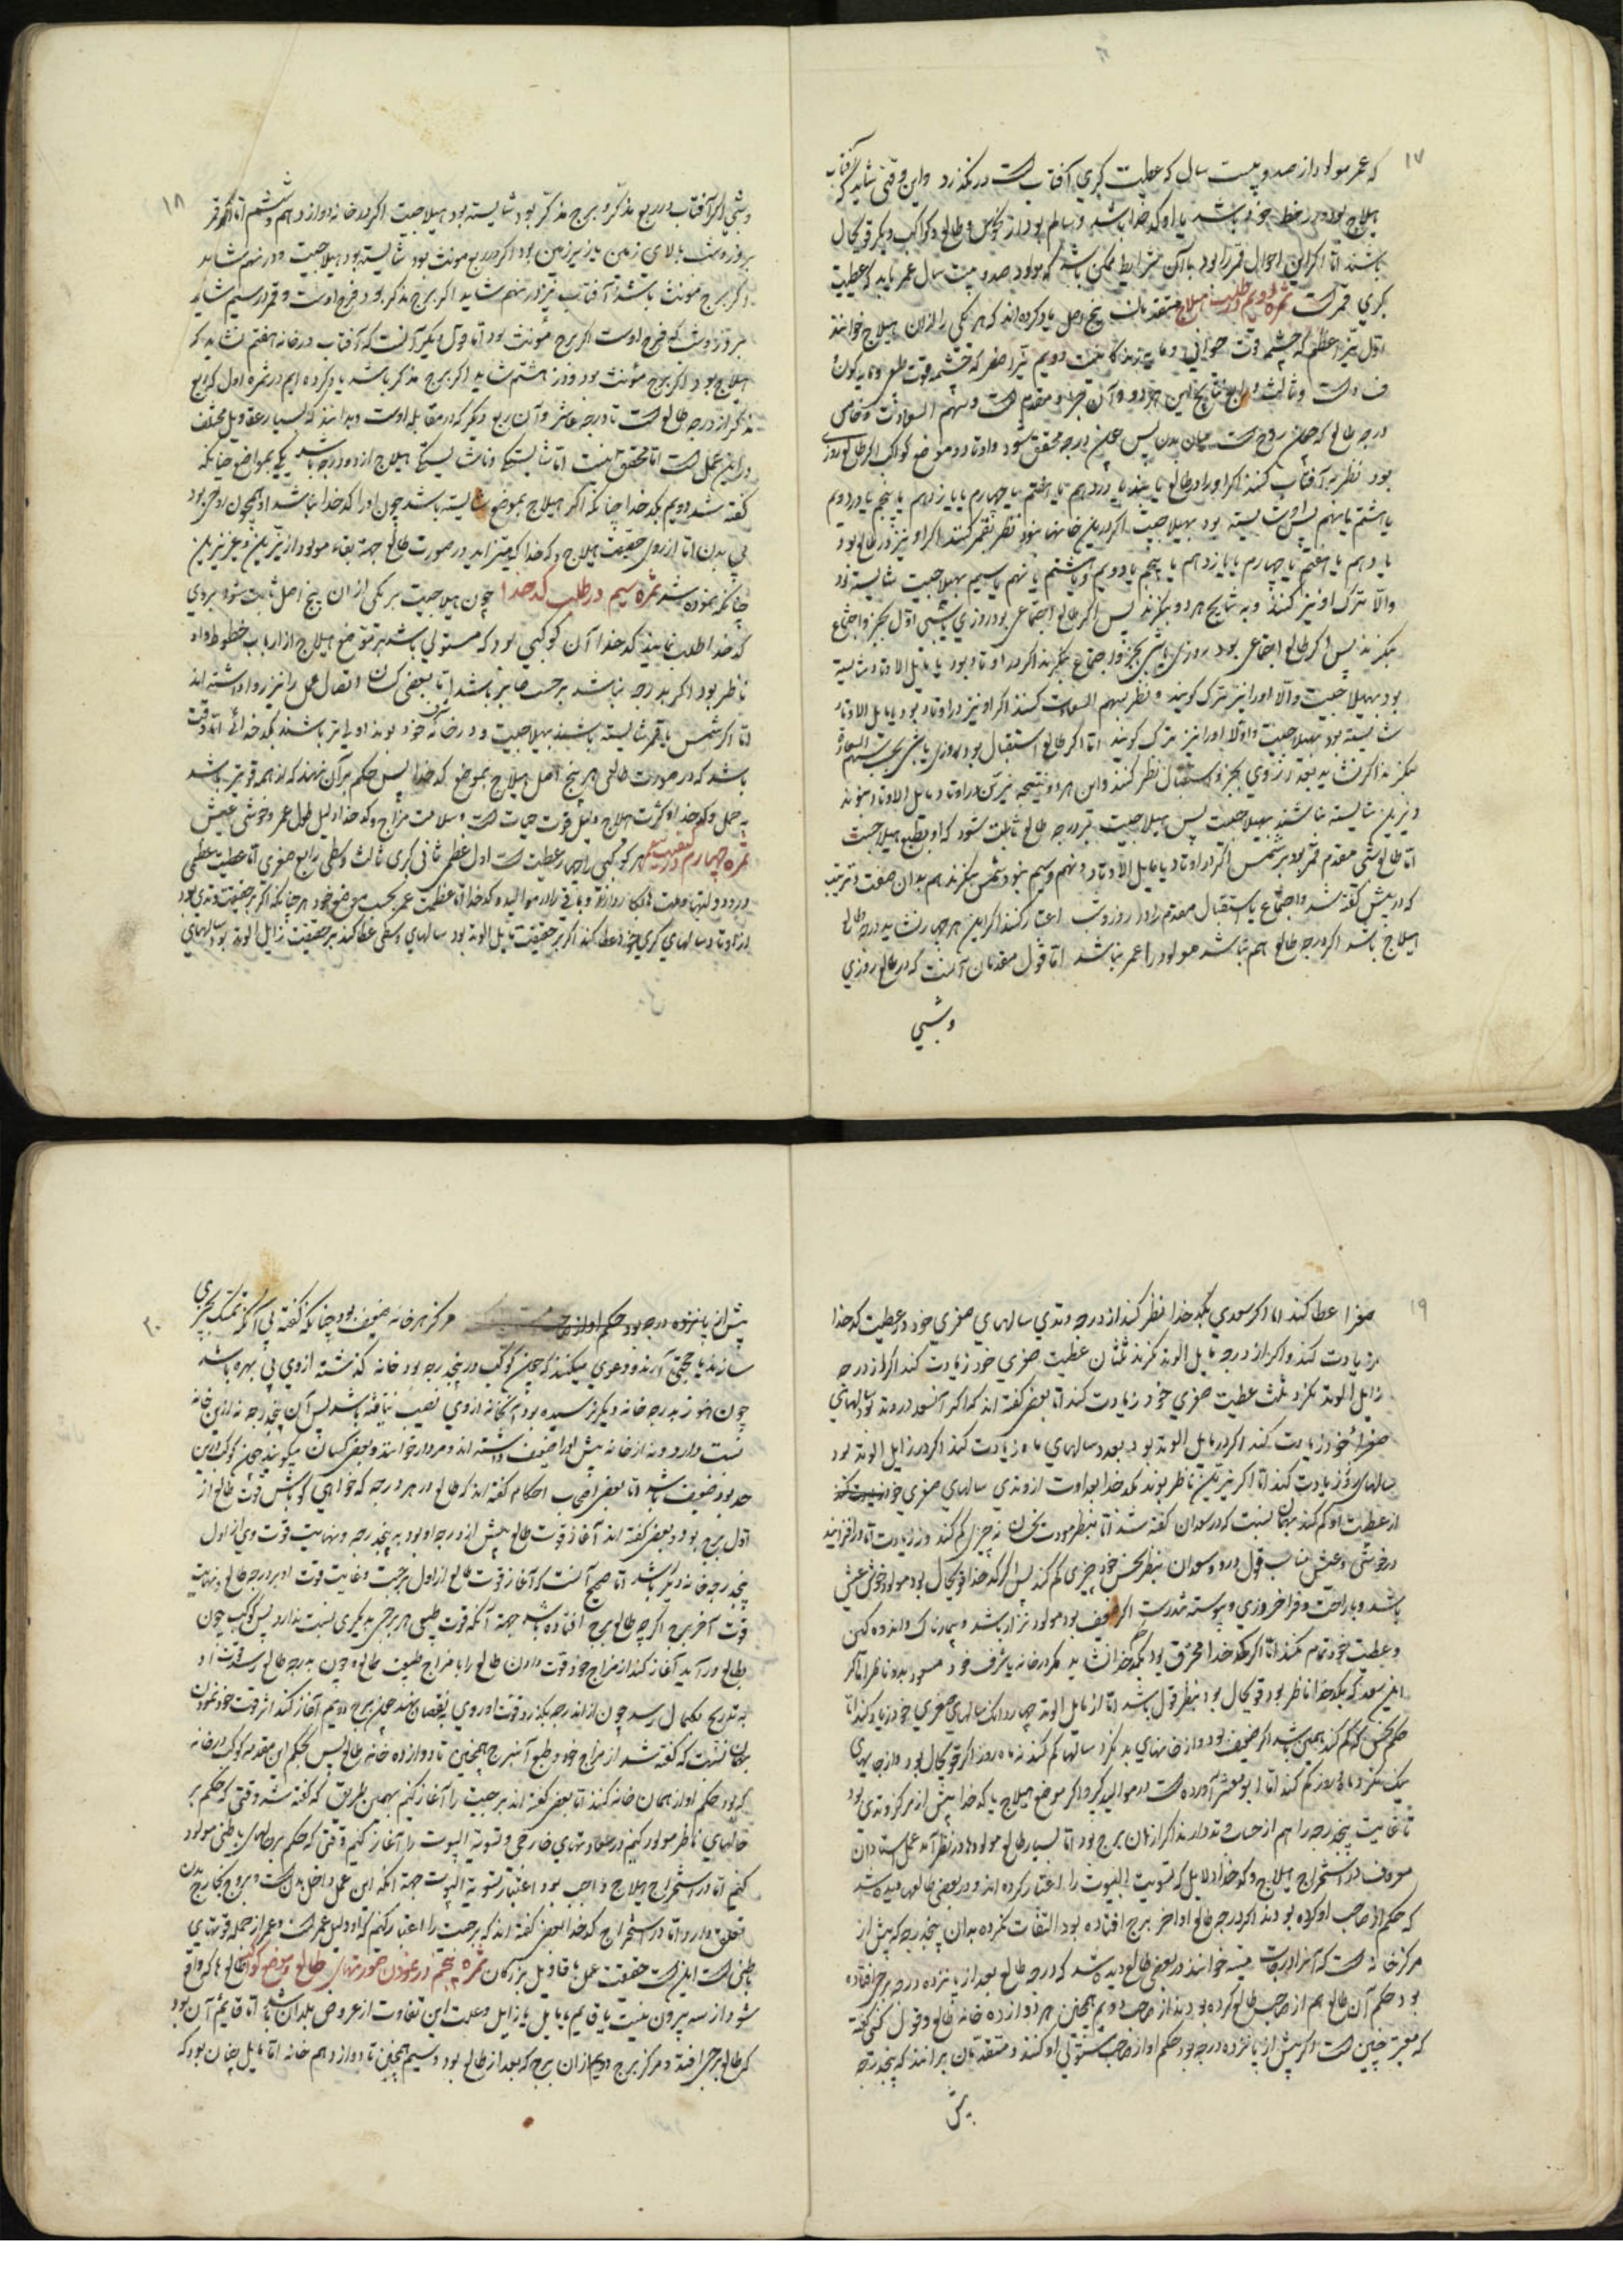 ۱۷
که عمر مولود از صد و بیست سال که عطیت کبری آفتاب است در نگذرد و این وقتی شاید که آفتاب
هیلاج بود و در حظ خود باشد یا او کدخدا باشد و سالم بود از نحوس و طالع و کواکب دیگر قوی حال
باشند اما اگر این احوال قمر را بود با آن شرایط ممکن باشد که مولود صد و بیست سال عمر یابد که عطیت
کبری قمر است ثمره دویم در طلب هیلاج متقدمان پنج اصل یاد کرده اند که هر یکی را از آن هیلاج خوانند
اول نیر اعظم که چشمه قوت حیوانی و مایه زندگانیست دویم نیر اصغر که چشمه قوت طبیعی و مایه کون
فساد است و ثالث و رابع نتایج این هر دو و آن جزو مقدم است و سهم السعادت و خامس
درجه طالع که
بود نظر به آفتاب کنند اگر او را در طالع یابند یا در دهم یا هفتم یا چهارم یا یازدهم یا پنجم یا در دویم
یا هشتم یا نهم پس او شایسته بود بهیلاجیت اگر در این خانها نبود نظر بقمر کنند اگر او نیز در طالع بود
یا دهم یا هفتم یا چهارم یا یازدهم یا پنجم یا دویم و یا هشتم یا نهم یا سیم بهیلاجیت شایسته بود
والا ترک او نیز کنند و به نتایج هر دو بنگرند پس اگر طالع اجتماعی بود روزی یا شبی اول بجزو اجتماع
بنگرند پس اگر طالع اجتماعی بود روزی یا شبی بجزو اجتماع بنگرند اگر در اوتاد بود یا مایل الاوتاد شایسته
بود بهیلاجیت والا او را نیز ترک گویند و نظر بسهم السعادت کنند اگر او نیز در اوتاد بود یا مایل الاوتاد
شایسته بود بهیلاجیت والا او را نیز ترک گویند اما اگر طالع استقبال بود روزی یا شبی نخست بسهم السعادة
بنگرند اگر نشاید بعد از وی بجزو استقبال نظر کنند و این هر دو نتیجه نیرین در اوتاد و مایل الاوتاد نبوند
و نیرین شایسته نباشند بهیلاجیت پس هیلاجیت بر درجه طالع ثابت شود که او بطبع هیلاجست
اما طالع شبی مقدم قمر بود بر شمس اگر در اوتاد یا مایل الاوتاد و نهم و سیم نبود بشمس بنگرند هم بدان صفت و ترتیب
که در پیش گفته شد و اجتماع یا استقبال مقدم را در روز و شب اعتبار کنند اگر این هر چهار نشاید درجه طالع
هیلاج باشد اگر درجه طالع هم نباشد مولود را عمر نباشد اما قول متقدمان آنست که در طالع روزی
وشبی
۱۸
وشبی اگر آفتاب در ربع مذکر و برج مذکر بود شایسته بود بهیلاجیت اگر در خانه دوازدهم و ششم اما اگر قمر
بروز و شب بالای زمین یا زیر زمین بود اگر در ربع مونث بود شایسته بود بهیلاجیت و در نهم نشاید
اگر برج مونث باشد آفتاب نیز در نهم شاید اگر برج مذکر بود فرح اوست و قمر در سیم شاید
بروز و شب که فرح اوست اگر برج مؤنث بود اما قول دیگر آنست که آفتاب در خانه هفتم نشاید که
هیلاج بود اگر برج مؤنث بود و در هشتم شاید اگر برج مذکر باشد یاد کرده ایم در ثمره اول که ربع
مذکر از درجه طالع است تا درجه عاشر و آن ربع دیگر که در مقابله اوست و بدانند که بسیار اقاویل مختلف
در این عمل است اما محقق نیست اما شایستگی و ناشایستگی هیلاج از دو وجه باشد یکی بمواضع چنانکه
گفته شد دویم بکدخدا چنانکه اگر هیلاج بموضع شایسته باشد چون او را کدخدا نباشد او همچون روحی بود
بی بدن اما از روی حقیقت هیلاج و کدخدا
چنانکه نموده شد ثمره سیم در طلب کدخدا چون هیلاجیت بر یکی از آن پنج اصل ثابت شود بروی
کدخدا طلب نمایند کدخدا آن کوکبی بود که مستولی باشد بر موضع هیلاج از ارباب حظوظ و او
ناظر بود اگر بدرجه نباشد برجست جایز باشد اما بعضی کسان اتصال عمل را نیز روا داشته اند
اما اگر شمس یا قمر شایسته باشند بهیلاجیت و در خانه شرف خود بوند اولی تر باشند بکدخدائی اما وقت
باشد که در صورت طالعی هر پنج اصل هیلاج بموضع کدخدا پس حکم بر آن نهند که از همه قوی تر باشد
به حمل و کدخدا و کثرت هیلاج دلیل قوت حیات است و سلامت مزاج و کدخدا دلیل طول عمر و خوشی عیش
ثمره چهارم هر کوکبی را چهار عطیت است اول عظمی ثانی کبری ثالث وسطی رابع صغری اما عطیت عظمی
اما عظیمت عمر بحسب موضع خود هر چنانکه اگر بر حقیقت وتدی بود
از اوتاد سالهای کبری خود عطا کند اگر بر حقیقت مایل الوتد بود سالهای وسطی عطا کند بر حقیقت زایل الوتد بود سالهای
۱۹
صغرا عطا کند اما اگر سعدی بکدخدا نظر کند از درجه وتدی سالهای صغری خود در عطیت کدخدا
زیادت کند و اگر از درجه مایل الوتد نگرد ثلثان عطیت صغری خود زیادت کند اگر از درجه
زایل الوتد نگرد ثلث عطیت صغری خود زیادت کند اما بعضی گفته اند که اگر آن سعد در وتد بود سالهای
صغراء خود زیادت کند اگر در مایل الوتد بود بعدد سالهای ماه زیادت کند اگر در زایل الوتد بود
سالهای روز زیادت کند اما اگر نیرین ناظر بوند بکدخدا بعداوت از وتدی سالهای صغری خود
از عطیت او کم کند بهمان نسبت که در سعدان گفته شد اما بنظر مودت نحسان نه چیزی کم کند و نه زیادت اما در افزایند
در خوشی و عیش مناسب قول درو و سعدان بنظر نحس خود چیزی کم کند پس اگر کدخدا قوی حال بود مولود خوش عیش
باشد و با راحت و فراخ روزی و پیوسته تندرست اگر ضعیف بود مولود نزار باشد و بیمارناک و اندوه گین
و عطیت خود تمام نکند اما اگر کدخدا محترق بود بکدخدائی نشاید مگر در خانه یا شرف خود
این سعد که بکدخدا ناظر بود قوی حال بود بنظر قبول باشد اما از مایل الوتد چهار دانک سالهای صغری خود زیاد کند اما
حکم نحس که کم کند همین باشد اگر ضعیف بود و از خانهای بد نگرد سالها کم کند نه ماه و روز اگر قوی حال بود و از جایهای
نیک نگرد ماه و روز کم کند اما ابو معشر آورده است در موالید کبیر و اگر موضع هیلاج یا کدخدا پیش از مرکز وتدی بود
تا غایت پنج درجه را هم از حساب وتد دارند اگر از آن برج بود اما بسیار طالع مولودها در نظر آمد عمل استادان
معروف در استخراج هیلاج و کدخدا دلایل که تسویت البیوت را اعتبار کرده اند و در بعضی طالعها دیده شد
که حکم از صاحب او کرده بودند اگر درجه طالع اواخر برج افتاده بود التفات نکرده بدان پنج درجه که پیش از
مرکز خانه است که آنرا درجات میته خوانند و در بعضی طالع دیده شد که درجه طالع بعد از پانزده درجه برج افتاده
بود حکم آن طالع هم از صاحب طالع کرده بودند از صاحب دویم همچنین هر دوازده خانه طالع و قول کسی گفته
که معتبر چنین است اگر پیش از پانزده درجه بود حکم او از صاحب مستولی او کنند و متقدمان برانند که پنج درجه
پیش
۲۰
پیش از پانزده درجه بود حکم او از مرکز هر خانه ضعیف بود چنانکه گفته بی آنکه تمسک بخبری
سازند یا حجتی آرند و دعوی میکنند که چون کوکب در پنج درجه بود خانه گذشته از وی بی بهره باشد
چون هنوز بدرجه خانه دیگر نرسیده بود آن خانه از وی نصیب نیافته باشد پس آن پنج درجه نه از این خانه
نسبت دارد و نه از خانه پیش او را ضعیف داشته اند و مردار خوانند و بعضی کسان میگویند چون کوکب در این
حد بود ضعیف باشد اما بعضی اصحاب احکام گفته اند که طالع در هر درجه که خواهی گو باش قوت طالع از
اول برج بود و بعضی گفته اند آغاز قوت طالع پیش از درجه او بود به پنج درجه و نهایت قوت وی از اول
پنج درجه خانه دیگر باشد اما صحیح آنست که آغاز قوت طالع از اول برجست و غایت قوت او بر درجه طالع و نهایت
قوت آخر برج اگر چه طالع برج افتاده باشد جهة آنکه قوت طبیعی هر برجی بدیگری نسبت ندارد پس کوکب چون
بطالع در آید آغاز کند از مزاج خود قوت دادن طالع را با مزاج طبیعت طالع و چون بدرجه طالع رسد قوت او
به تدریج بکمال رسد چون از آن درجه بگذرد قوت او روی بنقصان نهد چون برج دویم آغاز کند اثر قوت خود نمودن
بهمان نسبت که گفته شد از مزاج خود و طبع آن برج همچنین تا دوازده خانه طالع پس بحکم این مقدمه کوکب در خانه
که بود حکم او از همان خانه کنند اما بعضی گفته اند برجیت را آغاز کنیم بهمین طریق که گفته شد وقتی که حکم بر
حالهای ناظر مولود کنیم در سعادتهای خارجی و تسویة البیوت را آغاز کنیم وقتی که حکم بر حالهای باطنی مولود
کنیم اما در استخراج هیلاج واجب بود اعتبار تسویة البیوت جهة آنکه این عمل داخل بدنست و بروج بخارج بدن
تعلق دارد و اما در استخراج کدخدا بعضی گفته اند که برجیت را اعتبار کنیم که او دلیل عمر است و عمر از جمله قوتهای
باطنی است اینست حقیقت عمل باقاویل بزرگان ثمره پنجم در نمودن صورتهای طالع و موضع کواکب طالعها که واقع
شود از سه بیرون نیست یا قایم یا مایل یا زایل و علت این تفاوت از عروض بلدان باشد اما قایم آن بود
که طالع برجی افتد و مرکز برج دهم از آن برج که بعد از طالع بود و سیم همچنین تا دوازدهم خانه اما مایل چنان بود که